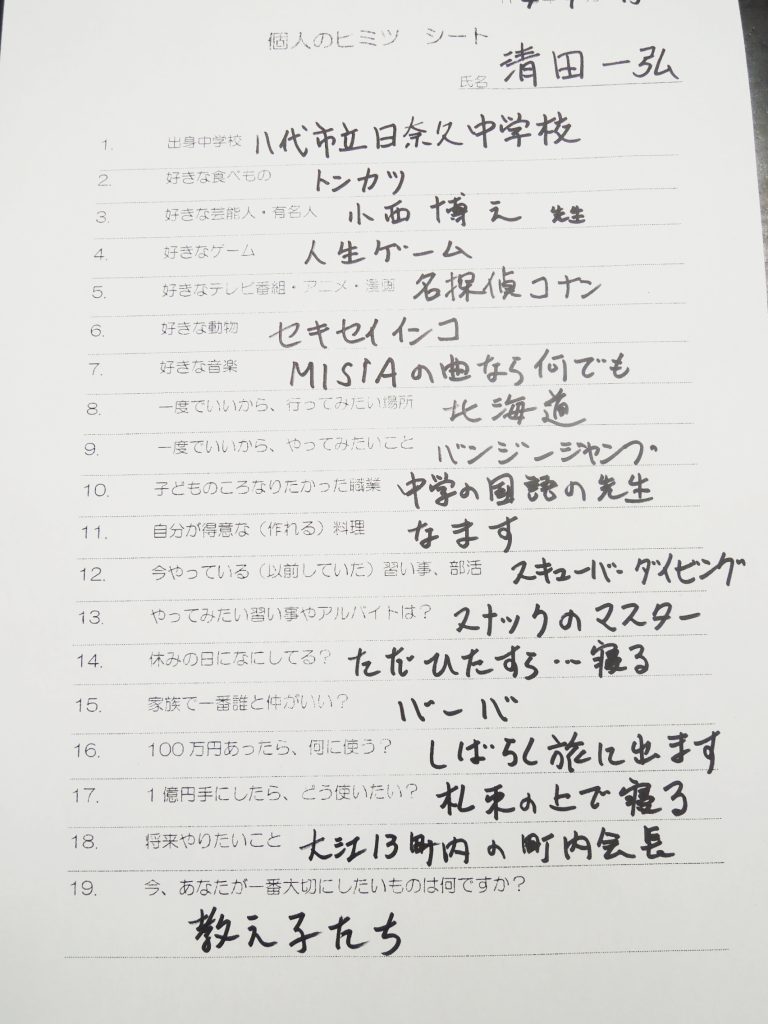 個人のヒミツ シート
氏名 清田一弘
1. 出身中学校 八代市立日奈久中学校
2. 好きな食べもの トンカツ
3. 好きな芸能人・有名人 小西博之 先生
4. 好きなゲーム 人生ゲーム
5. 好きなテレビ番組・アニメ・漫画 名探偵コナン
6. 好きな動物 セキセイインコ
7. 好きな音楽 MISIAの曲なら何でも
8. 一度でいいから、行ってみたい場所 北海道
9. 一度でいいから、やってみたいこと バンジージャンプ
10. 子どものころなりたかった職業 中学の国語の先生
11. 自分が得意な（作れる）料理 なます
12. 今やっている（以前していた）習い事、部活 スキューバーダイビング
13. やってみたい習い事やアルバイトは？ スナックのマスター
14. 休みの日になにしてる？ ただひたすら…寝る
15. 家族で一番誰と仲がいい？ バーバ
16. 100万円あったら、何に使う？ しばらく旅に出ます
17. 1億円手にしたら、どう使いたい？ 札束の上で寝る
18. 将来やりたいこと 大江13町内の町内会長
19. 今、あなたが一番大切にしたいものは何ですか？
教え子たち